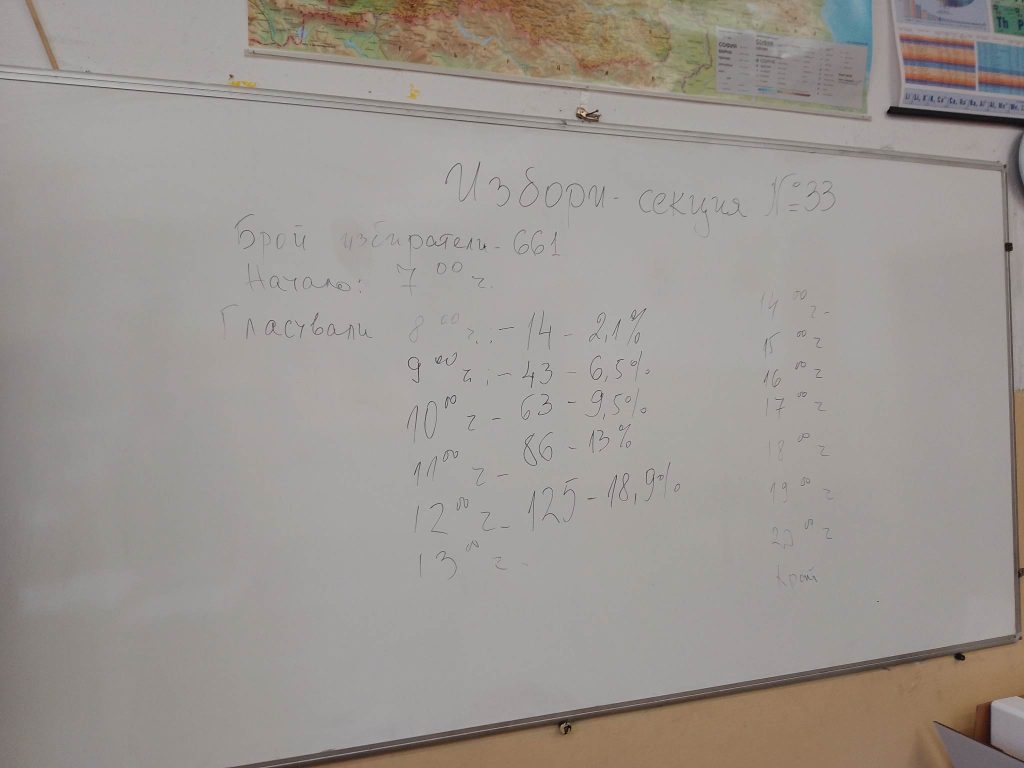 СОФИЯ
Избори - секция №33
Брой избиратели - 661
Начало: 7⁰⁰ ч.
Гласували 8⁰⁰ ч.: - 14 - 2,1%
9⁰⁰ ч.: - 43 - 6,5%
10⁰⁰ ч - 63 - 9,5%
11⁰⁰ ч - 86 - 13%
12⁰⁰ ч - 125 - 18,9%
13⁰⁰ ч.
14⁰⁰ ч.
15⁰⁰ ч
16⁰⁰ ч
17⁰⁰ ч
18⁰⁰ ч
19⁰⁰ ч
20⁰⁰ ч
Край